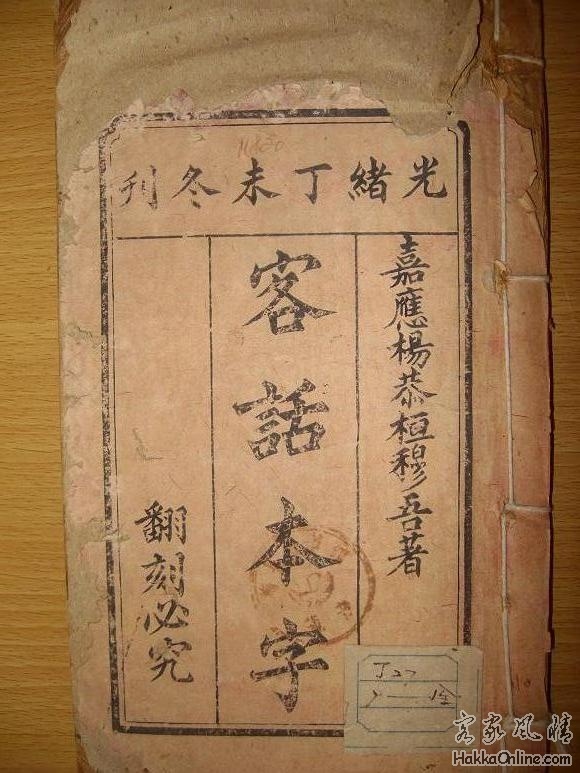 光緒丁未冬刊
嘉應楊恭桓穆吾著
客話本字
翻刻必究
客家風情
HakkaOnline.com